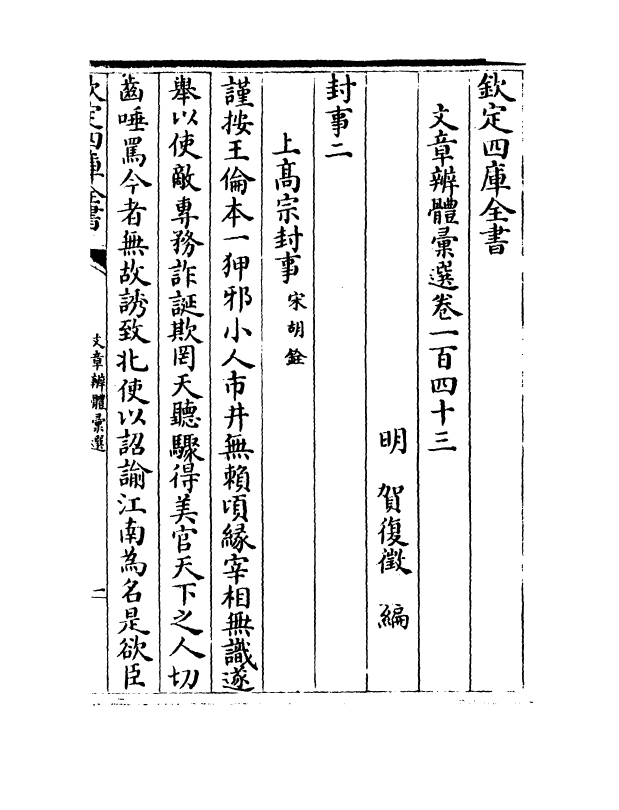 欽定四庫全書
文章辨體彚選卷一百四十三
明 賀復徵 編
封事二
上髙宗封事 宋胡銓
謹按王倫本一狎邪小人市井無賴頃緣宰相無識遂
舉以使敵專務詐誕欺罔天聽驟得美官天下之人切
齒唾罵今者無故誘致北使以詔諭江南為名是欲臣
欽定四庫全書
文章辨體彚選
一